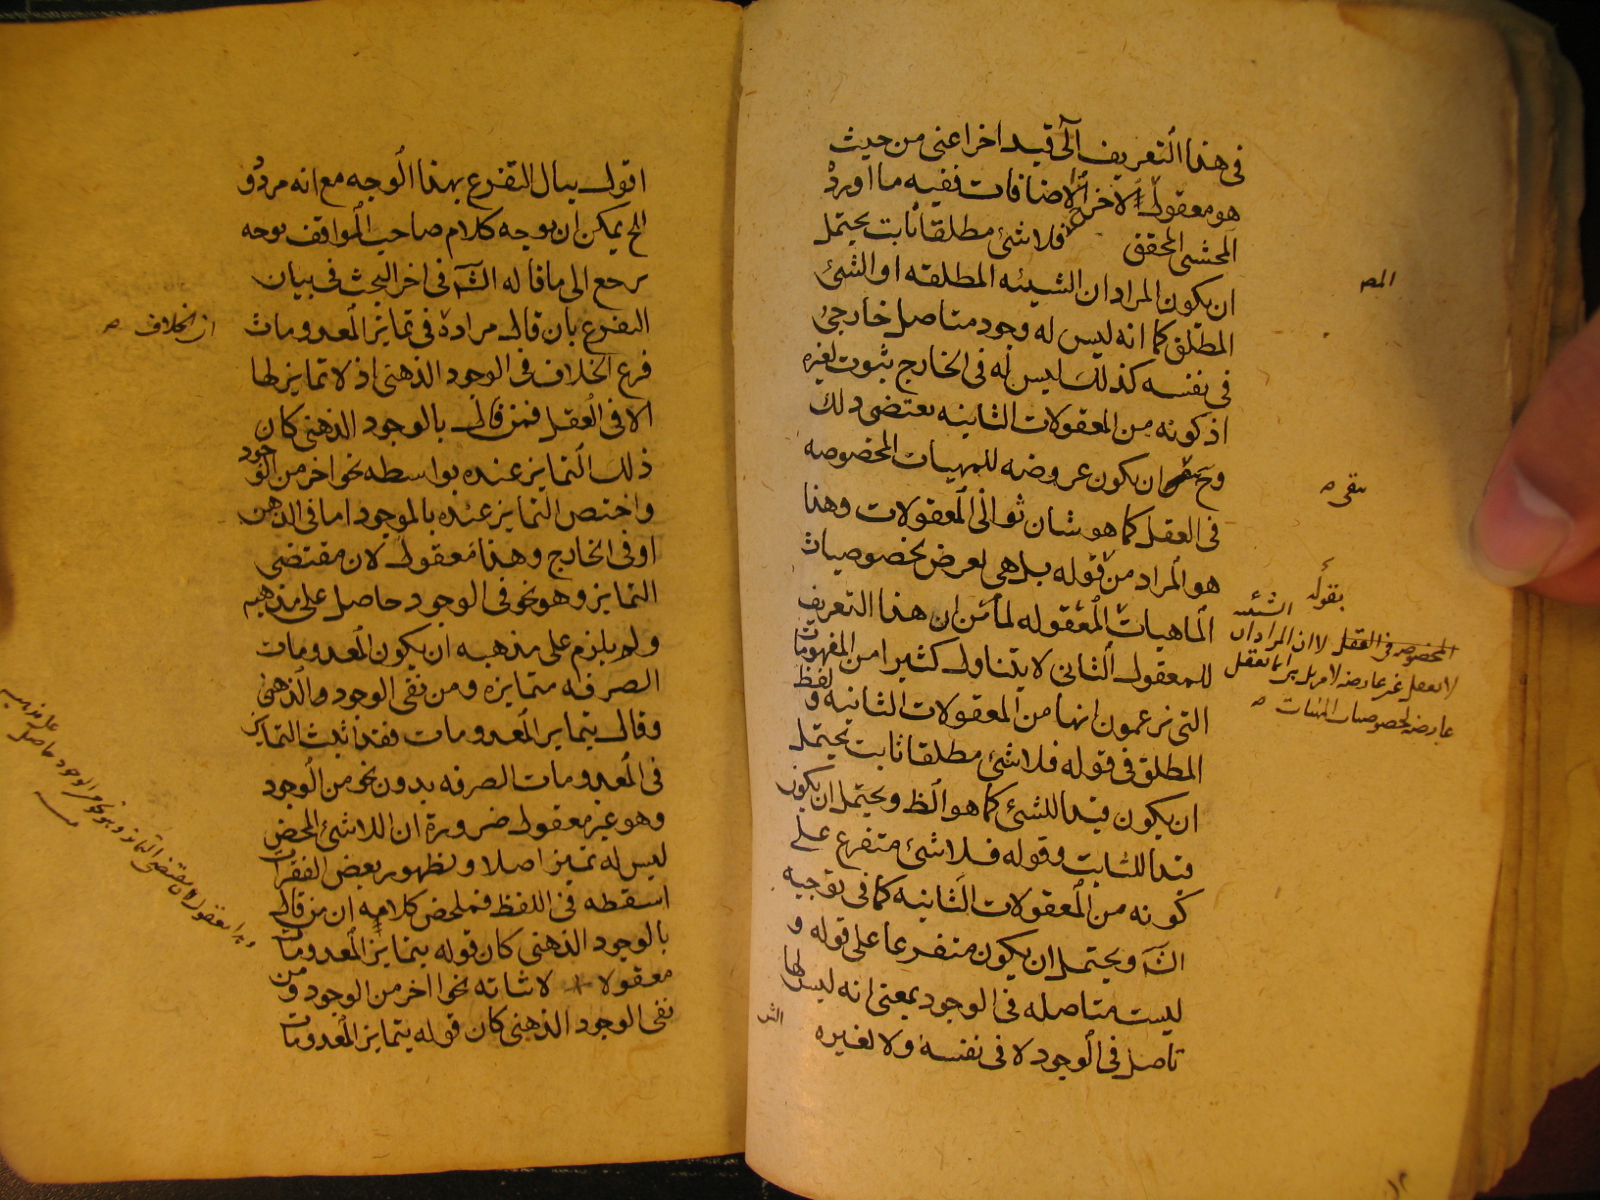 فى هذا التعريف الى قيد اخر اعنى من حيث
هو معقول الاخر الاضافات ففيه ما اورد
المحشى المحقق فلا شئ مطلقا ثابت يحتمل
ان يكون المراد ان الشيئه المطلقه او الشئ
المطلق كما انه ليس له وجود متاصل خارجى
فى نفسه كذلك ليس له فى الخارج ثبوت لغيره
اذ كونه من المعقولات الثانيه يقتضى ذلك
ان يكون عروضه للمهيات المخصوصه
فى العقل كما هو شان ثوانى المعقولات وهذا
هو المراد من قوله بل هى تعرض لخصوصيات
الماهيات المعقوله لما من ان هذا التعريف
للمعقول الثانى لا يتناول كثيرا من المفهومات
التى يزعمون انها من المعقولات الثانيه و لفظ
المطلق فى قوله فلا شئ مطلقا ثابت يحتمل
ان يكون قيدا للشئ كما هو الظ ويحتمل ان يكون
قيدا للثابت وقوله فلا شئ متفرع على
كونه من المعقولات الثانيه كما فى توجيه
الش ويحتمل ان يكون متفرعا على قوله و
ليست متاصله فى الوجود بمعنى انه ليس لها
تاصل فى الوجود لا فى نفسه ولا لغيره
المص
بقوله
المخصوصه فى العقل لا ان المراد ان الشيئيه
عارضه لخصوصيات المهيات
اقول يبال التفرع بهذا الوجه مع انه مردود
الخ يمكن ان يوجه كلام صاحب المواقف بوجه
يرجع الى ما قاله الش فى اخر البحث فى بيان
التفرع بان قال مراده فى تمايز المعدومات
فرع الخلاف فى الوجود الذهنى اذ لا تمايز لها
الا فى العقل فمن قال بالوجود الذهنى كان
ذلك التمايز عنده بواسطه نحو اخر من الوجود
واختص التمايز عنده بالموجود اما فى الذهن
او فى الخارج وهذا معقول لان مقتضى
التمايز وهو نحو فى الوجود حاصل على مذهبه
ولم يلزم على مذهبه ان يكون المعدومات
الصرفه متمايزه ومن نفى الوجود الذهنى
وقال بتمايز المعدومات فقد اثبت التمايز
فى المعدومات الصرفه بدون نحو من الوجود
وهو غير معقول ضرورة ان اللاشئ المحض
ليس له تميز اصلا ولظهور بعض الفقرات
اسقطه فى اللفظ فملخص كلامه ان من قال
بالوجود الذهنى كان قوله بتمايز المعدومات
معقولا لاثباته نحوا اخر من الوجود ومن
نفى الوجود الذهنى كان قوله بتمايز المعدومات
ان الخلاف